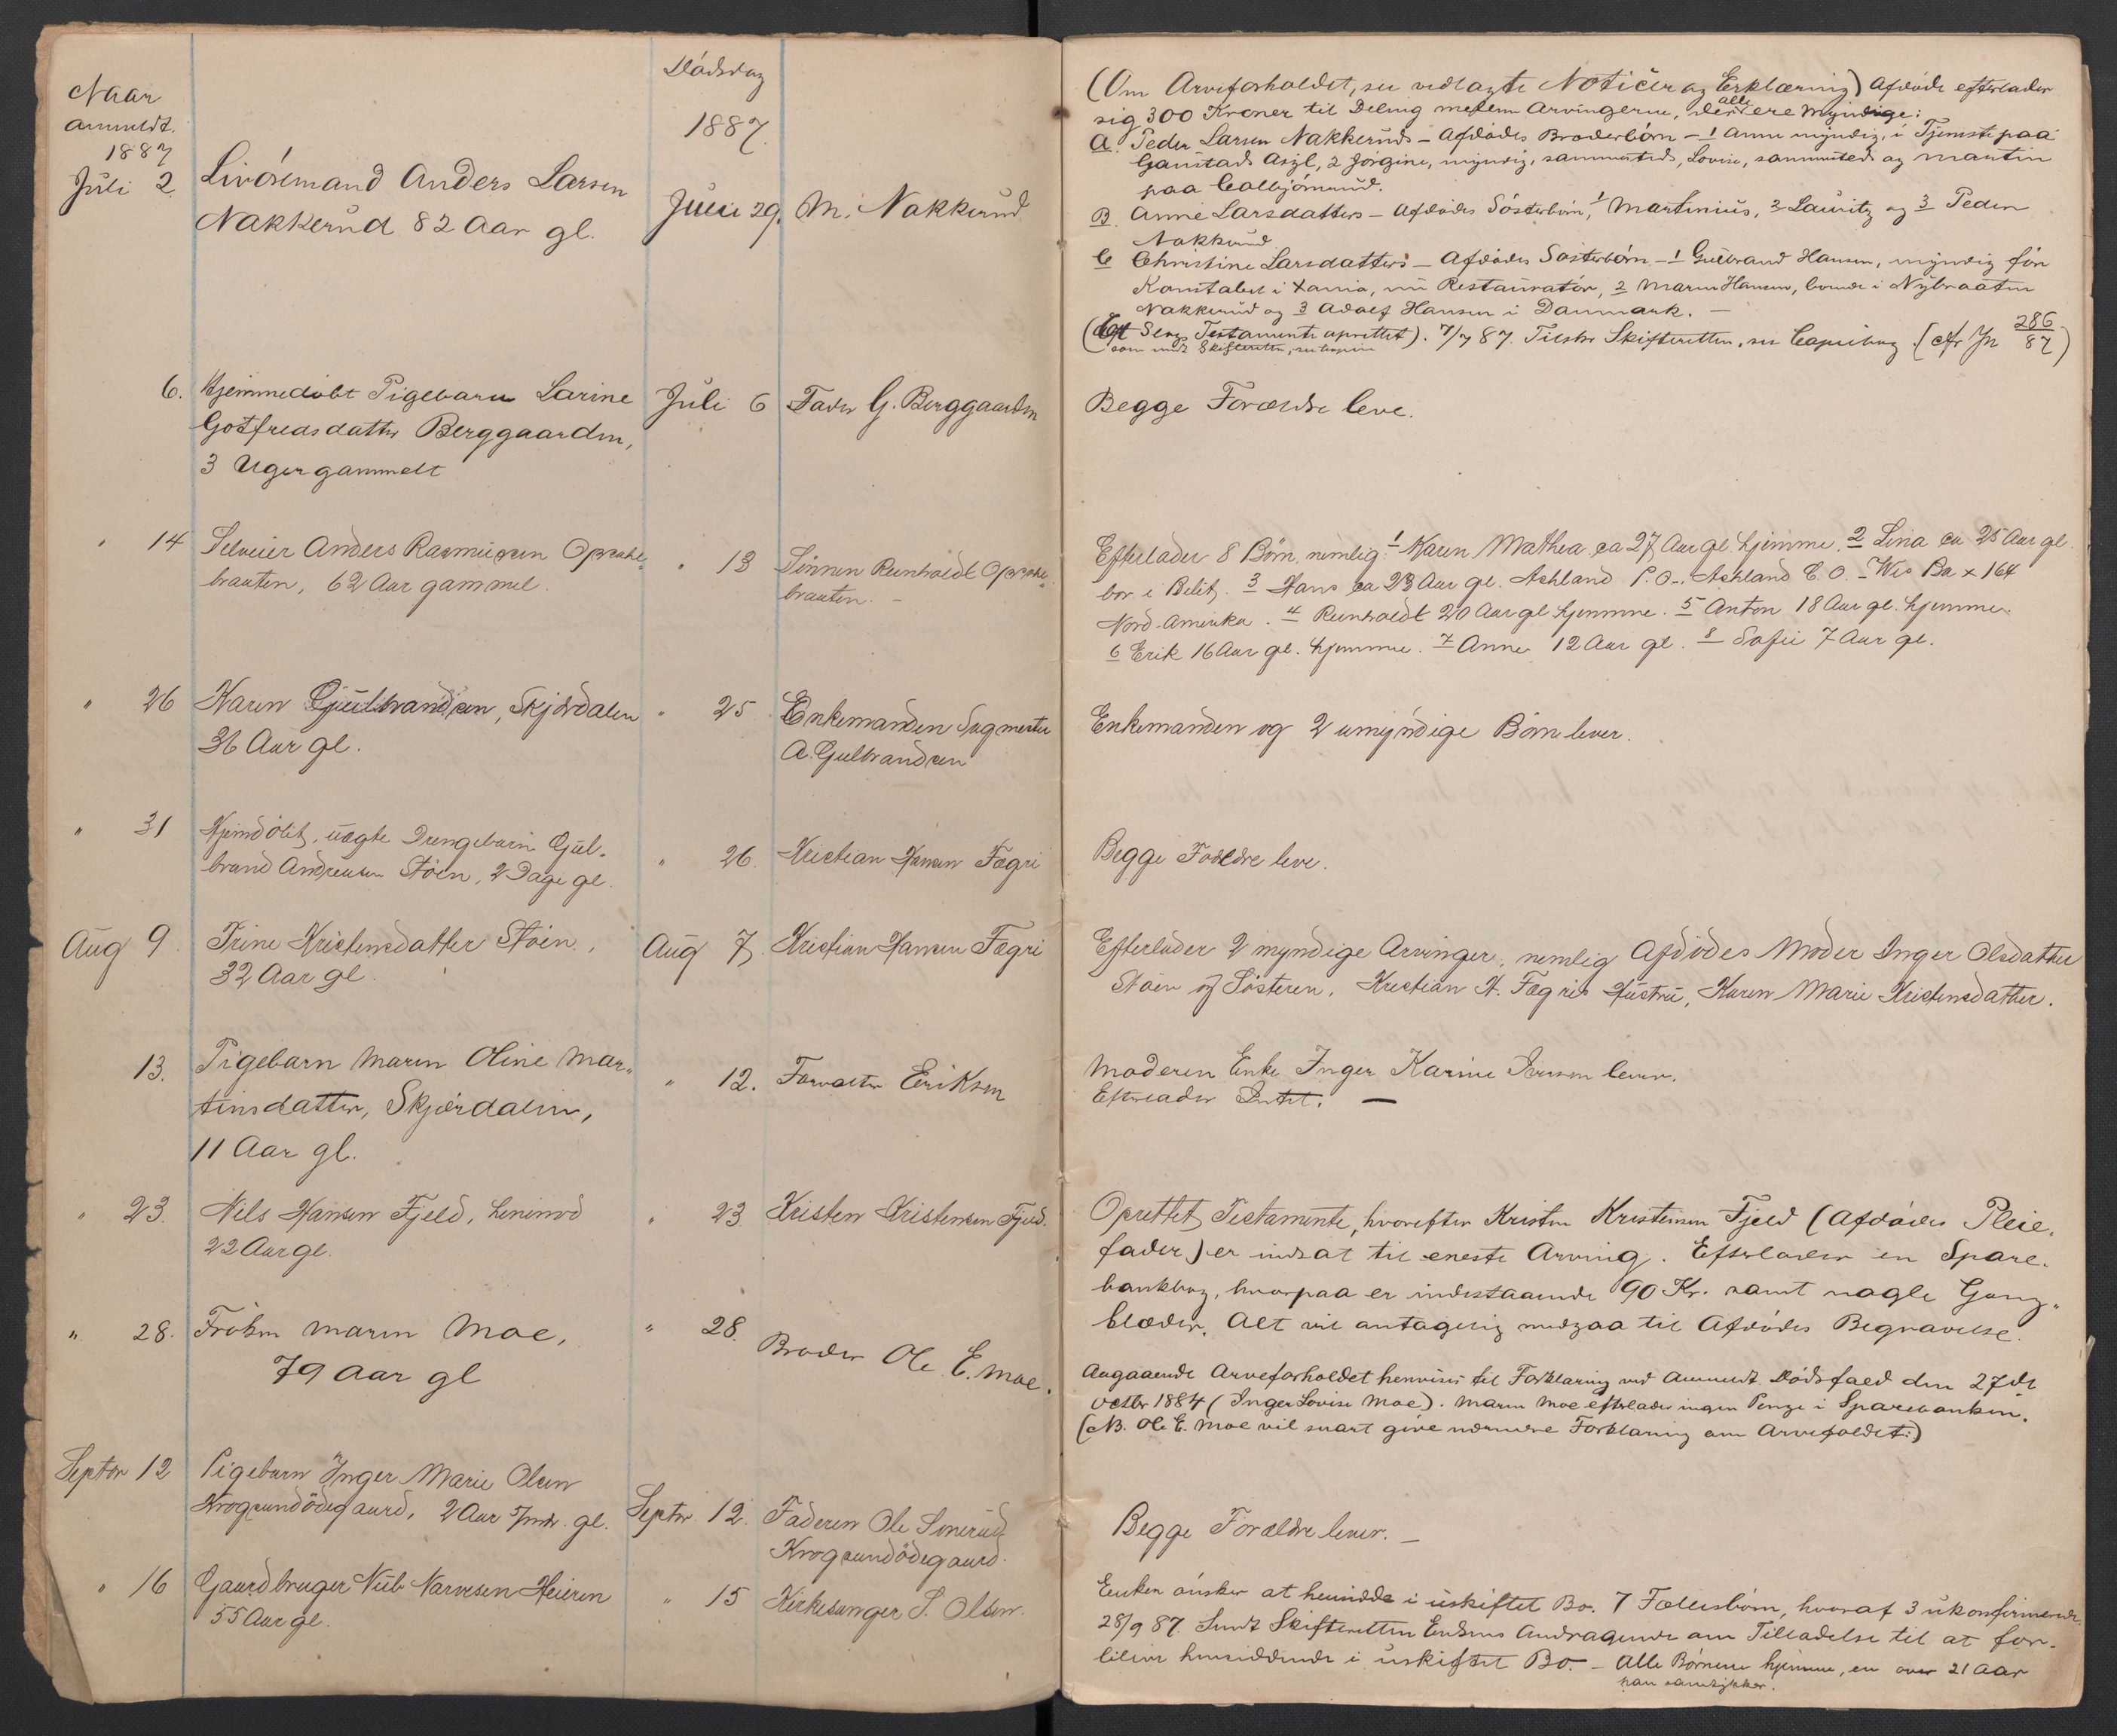 Naar
anmeldt.
1887
Dødsdag
1887.
Juli 2
Livøremand Anders Larsen
Nakkerud 82 Aar gl.
Juni 29.
M. Nakkerud
(Om Arveforholdet, se vedlagte Noticer og Erklæring) Afdøde efterlader
sig 300 Kroner til Deling mellem Arvingerne, alle myndige:
A. Peder Larsen Nakkeruds - Afdødes Broderbørn - 1 Anne myndig, i Tjeneste paa
Gaustads Asyl, 2 Jørgine, myndig, sammesteds, Lovise, sammesteds og Martin
paa
B Anne Larsdatters - Afdødes Søsterbørn, 1 Martinius, 2 Lauritz og 3 Peder
Nakkerud
C Christine Larsdatters - Afdødes Søsterbørn - 1 Gulbrand Hansen, myndig før
Konstabel i Xania, nu Restauratør, 2 Maren Hansen, boende i Nybraaten
Nakkerud og 3 Adolf Hansen i Danmark. -
Testamente oprettet). 7/7 87. Tilskr Skifteretten, se Copiebog. (cfr Jn 286/87)
som Skifteretten, se
6.
Hjemmedøbt Pigebarn Larine
Gotfredsdatter Berggaarden,
3 Uger gammelt
Juli 6
Fader G. Berggaarden
Begge Forældre leve.
" 14
Selveier Anders Rasmussen Opsahl-
braaten, 62 Aar gammel.
" 13
Sønnen Reinholdt Opsahl-
braaten. -
Efterlader 8 Børn, nemlig: 1 Karen Mathea ca 27 Aar gl. hjemme. 2 Lina ca 25 Aar gl.
bor i 3 Hans ca 23 Aar gl. Ashland P.O. Ashland C.O. - Wis Bx 164
Nord-Amerika. 4 Reinholdt 20 Aar gl hjemme. 5 Anton 18 Aar gl. hjemme.
6 Erik 16 Aar gl. hjemme. 7 Anne 12 Aar gl. 8 Sofie 7 Aar gl.
" 26
Karen Gulbrandsen, Skjærdalen
36 Aar gl.
" 25
Enkemanden Sagmester
A. Gulbrandsen
Enkemanden og 2 umyndige Børn lever.
" 31
Hjemdøbt, uægte Drengebarn Gul-
brand Andreasen Støen, 2 Dage gl.
" 26.
Kristian Hansen Fægri
Begge Forældre leve.
Aug 9.
Trine Kristensdatter Støen,
32 Aar gl.
Aug 7.
Kristian Hansen Fægri
Efterlader 2 myndige Arvinger, nemlig Afdødes Moder Inger Olsdatter
Støen og Søsteren, Kristian H. Fægris Hustru, Karen Marie Kristensdatter.
13.
Pigebarn Maren Oline Mar-
tinsdatter, Skjærdalen,
11 Aar gl.
" 12.
Forvalter Eriksen
Moderen Enke Inger Karine Iversen lever.
Efterlader Intet. -
" 23.
Nils Hansen Fjeld,
22 Aar gl.
" 23
Kristen Kristensen Fjeld.
Oprettet Testamente, hvorefter Kristen Kristensen Fjeld (Afdødes Pleie-
fader) er indsat til eneste Arving. Efterlader en Spare-
bankbog, hvorpaa er indestaaende 90 Kr. samt nogle Gang-
klæder. Alt vil antagelig medgaa til Afdødes Begravelse.
" 28.
Frøken Maren Moe,
79 Aar gl
" 28.
Broder Ole E. Moe.
Angaaende Arveforholdet henvises til Forklaring ved Anmeldt Dødsfald den 27de
Octbr 1884 (Inger Lovise Moe). Maren Moe efterlader ingen Penge i Sparebanken.
(NB. Ole E. Moe vil snart give nærmere Forklaring om Arvefoldet.)
Septbr 12
Pigebarn Inger Marie Olsen
Krogsundødegaard, 2 Aar 5 mdr. gl.
Septbr. 12.
Faderen Ole Sonerud
Krogsundødegaard.
Begge Forældre lever. -
" 16
Gaardbruger Nils Narvesen Heieren
55 Aar gl.
" 15
Kirkesanger S. Olsen.
Enken ønsker at hensidde i uskiftet Bo. 7 Fællesbørn, hvoraf 3 ukonfirmerede
28/9 87. Sendt Skifteretten Enkens Andragende om Tilladelse til at for-
blive hensiddende i uskiftet Bo. - Alle Børnene hjemme, en over 21 Aar
han samtykker.